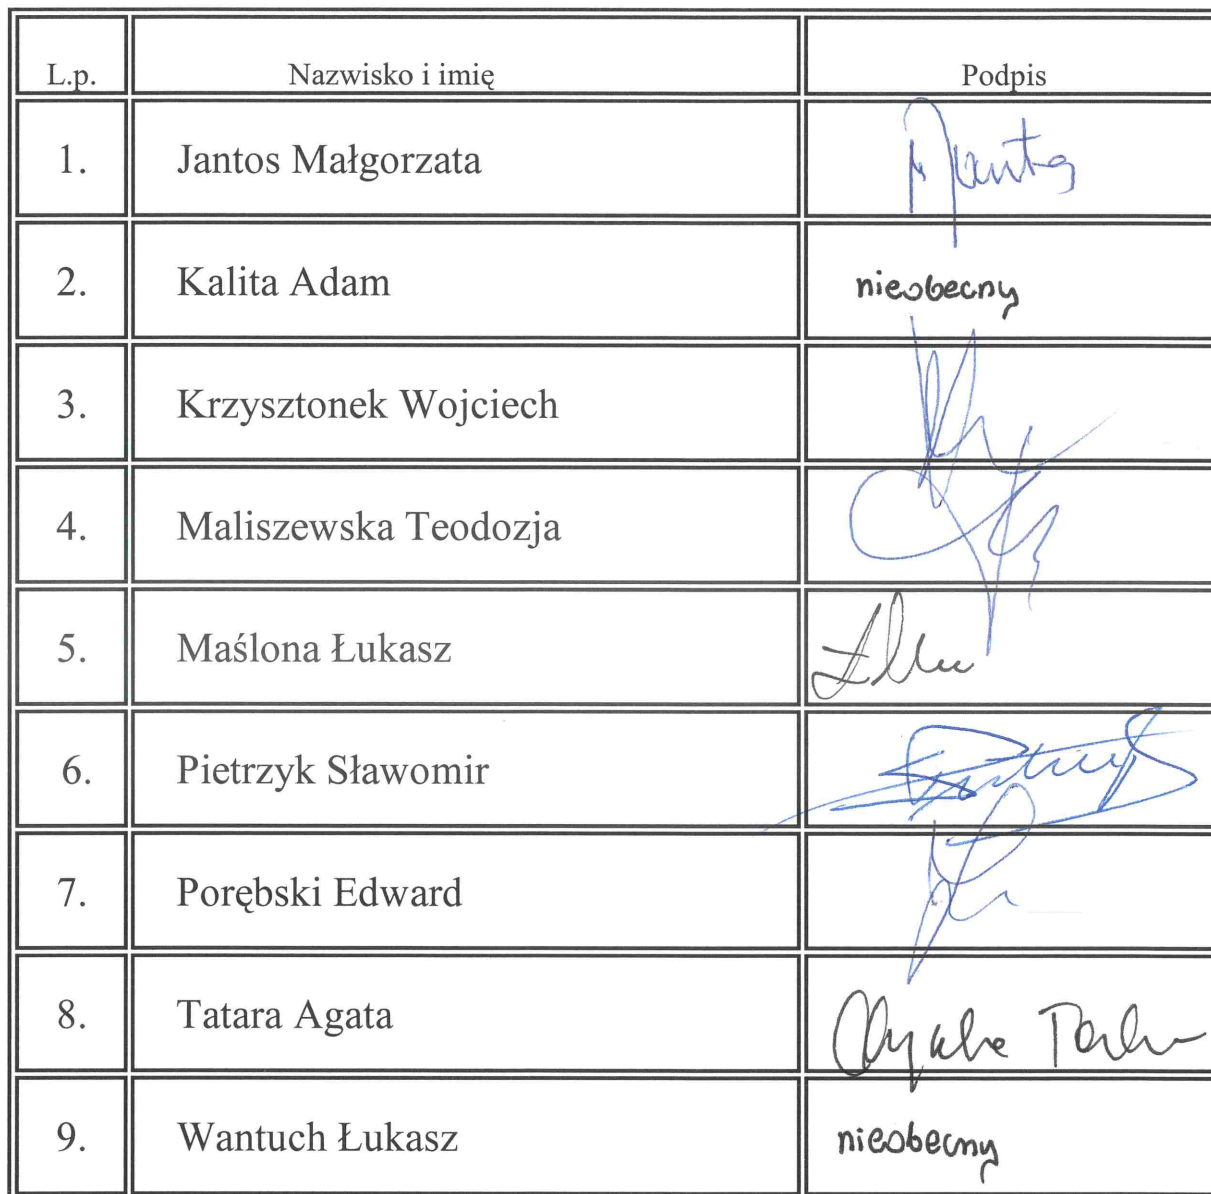 L.p. Nazwisko i imię Podpis
1. Jantos Małgorzata
2. Kalita Adam nieobecny
3. Krzysztonek Wojciech
4. Maliszewska Teodozja
5. Maślona Łukasz
6. Pietrzyk Sławomir
7. Porębski Edward
8. Tatara Agata
9. Wantuch Łukasz nieobecny